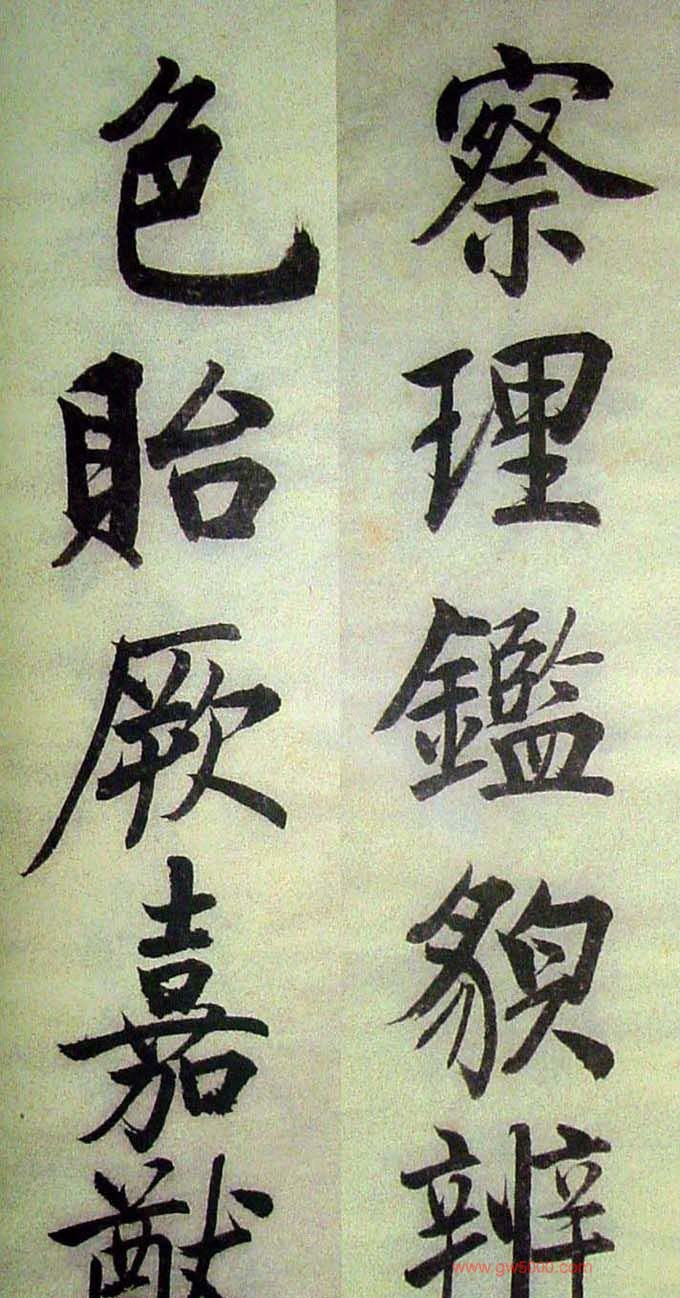 察理鑑貌辨
色貽厥嘉猷
www.gw5000.com